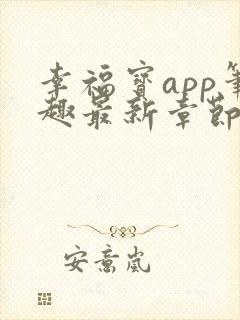 幸福宝app笔
趣最新章节
安意岚